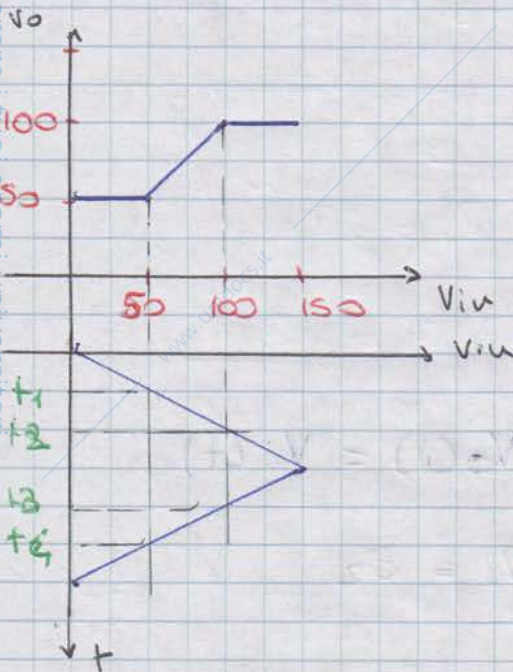 Vo
100
50
50 100 150
Vin
Vin
t1
t2
t3
t4
t